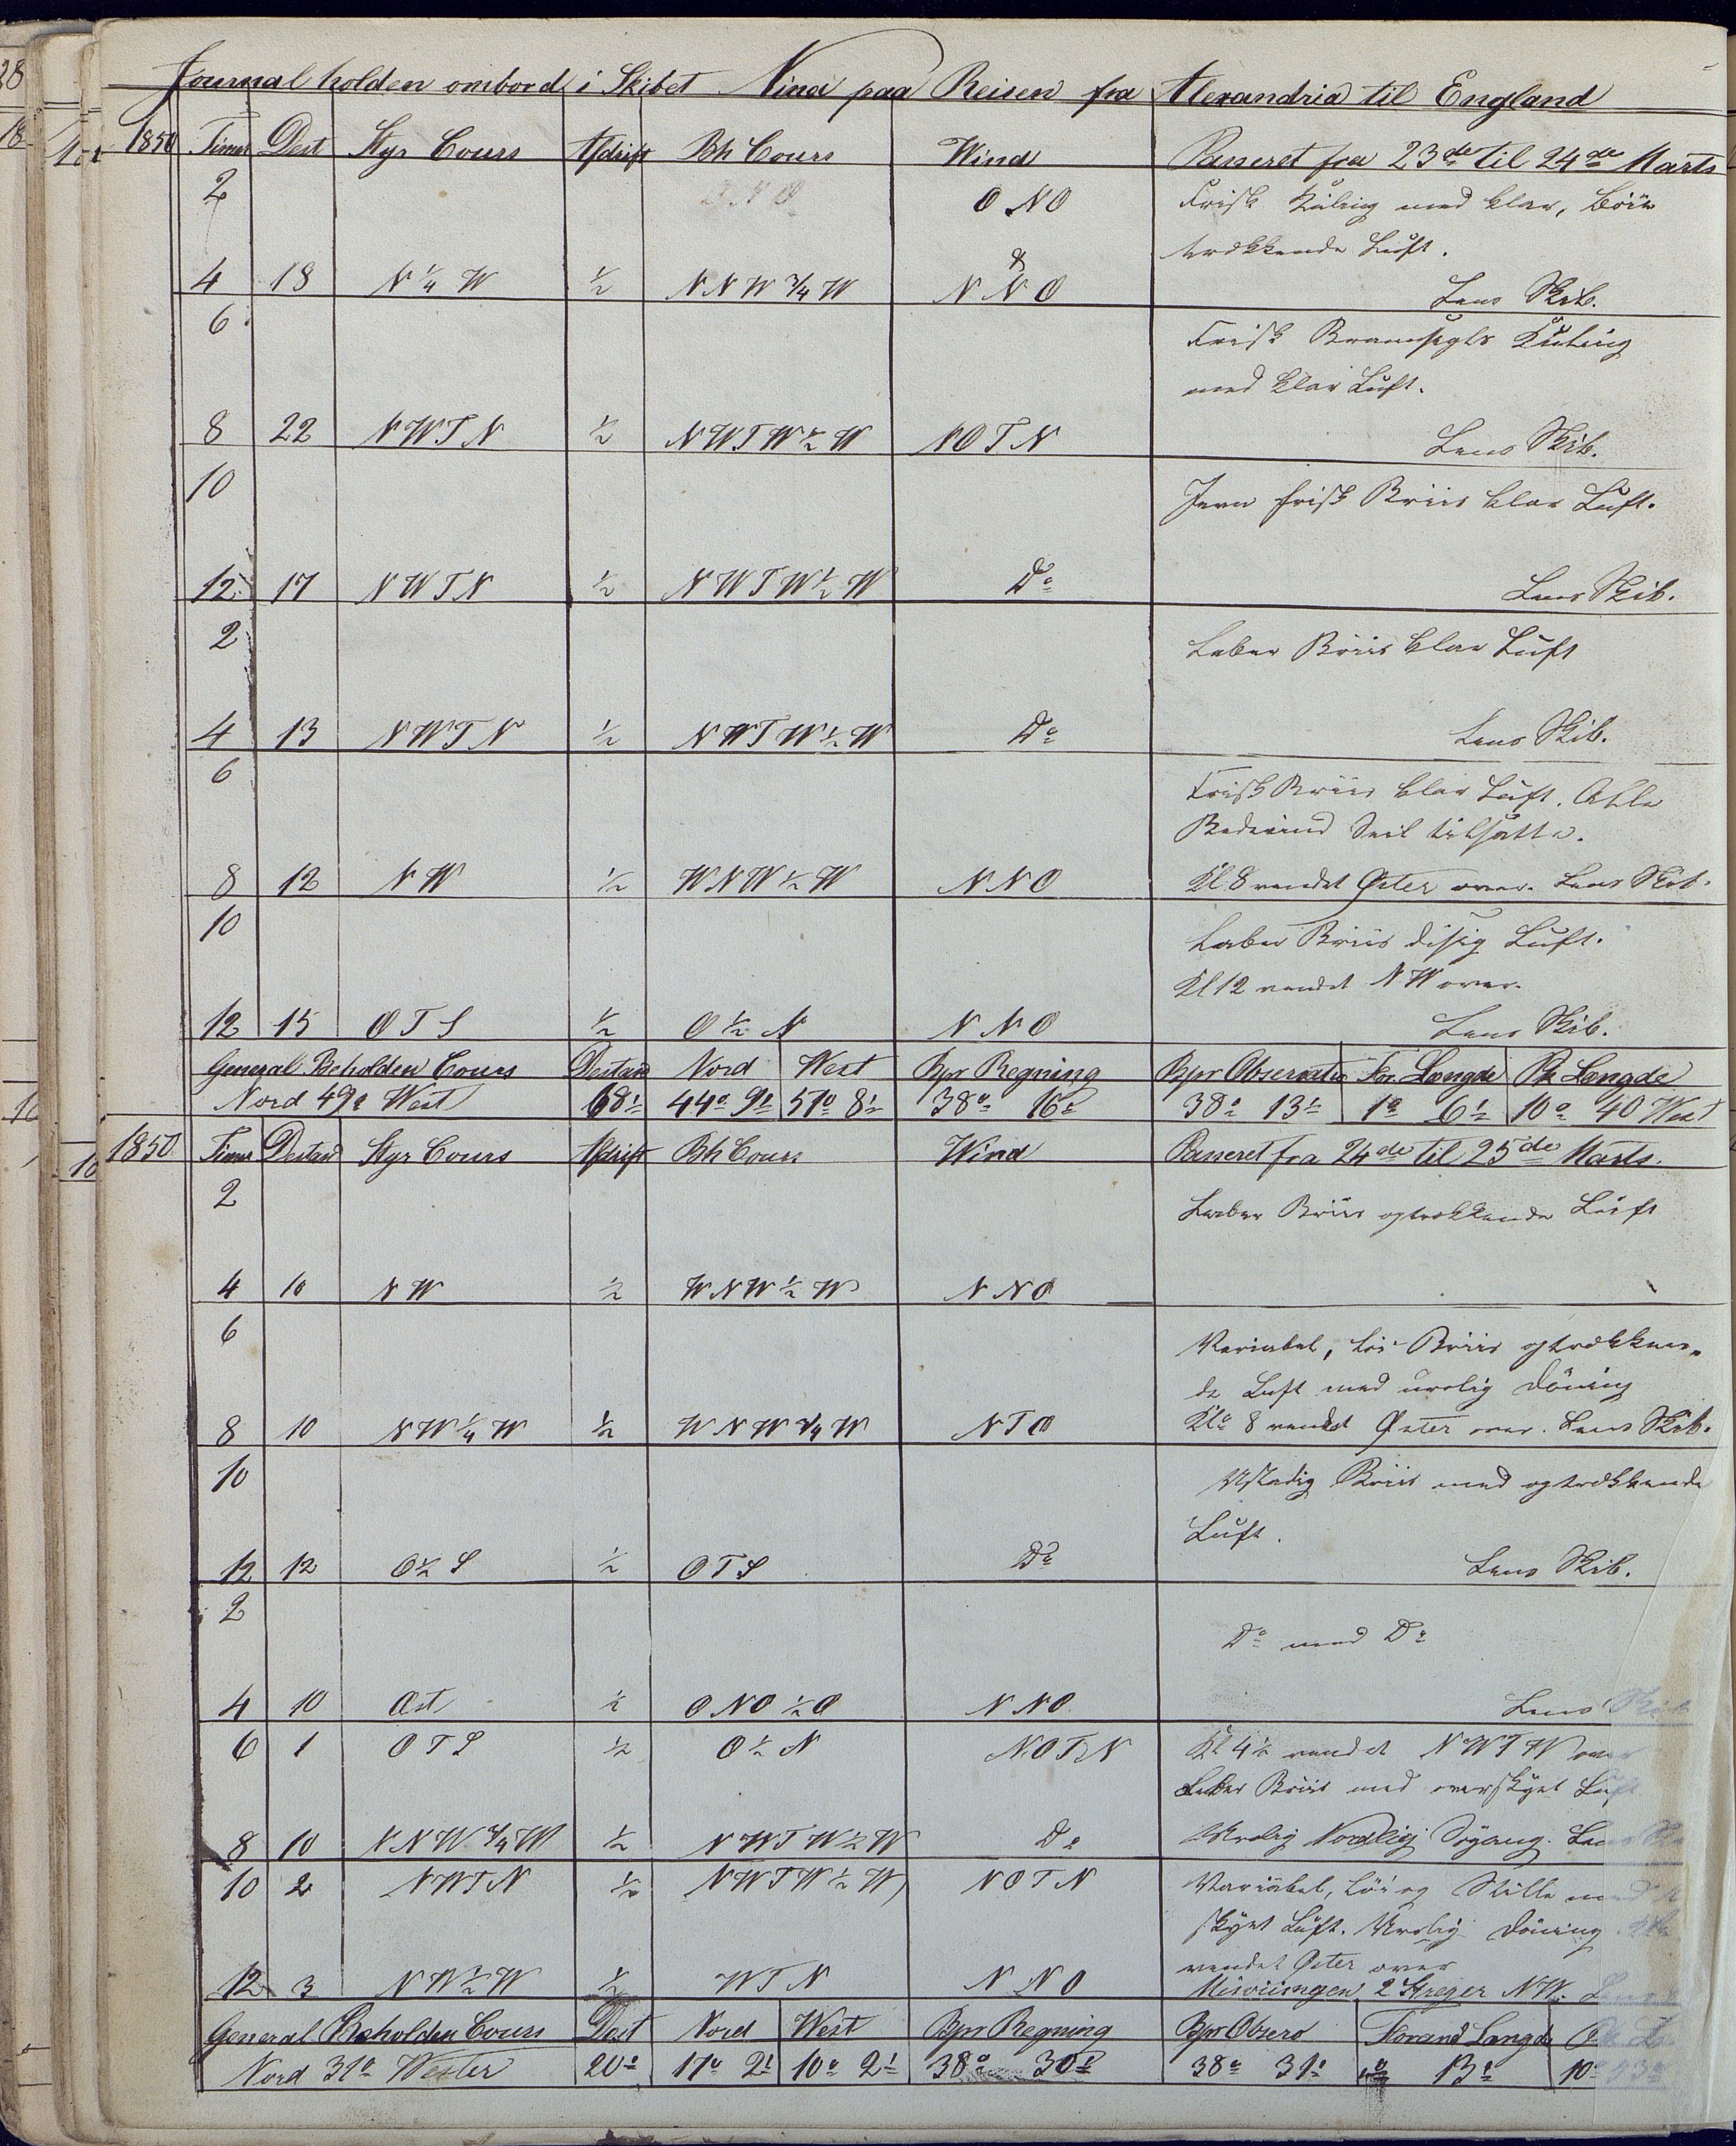 Journal holden ombord i Skibet Nina paa Reisen fra Alexandria til England
1850 Timer Dest Styr Cours Afdrift Bh Cours Wind Passeret fra 23de til 24de Marts
2 O NO Frisk Kuling med klar, Böie
trækkende Luft.
&
4 18 N 1/4 W 1/2 NNW 3/4 W NNO Lens Skib.
6 Frisk Bramsegls Kuling
med klar Luft.
8 22 NWTN 1/2 NWTW 1/2 W NOTN Lens Skib.
10 Jevn frisk Briis klar Luft.
12 17 NWTN 1/2 NWTW 1/2 W Do Lens Skib.
2 Laber Briis klar Luft
4 13 NWTN 1/2 NWTW 1/2 W Do Lens Skib.
6 Frisk Briis klar Luft. Alle
Bidevind Seil tilsatte.
8 12 NW 1/2 WNW 1/2 W NNO Kl 8 vendet Øster over. Lens Skib.
10 Laber Briis disig Luft.
Kl 12 vendt NW over.
12 15 OTS 1/2 O 1/2 N NNO Lens Skib.
General Beholden Cours Destand Nord West Bpr Regning Bpr Observatio For. Længde Bh Længde
Nord 49o West 68' 44o 9' 51o 8' 38o 16' 38o 13' 1o 6' 10o 40 West
1850 Timer Destand Styr Cours Afdrift Bh Cours Wind Passeret fra 24de til 25de Marts.
2 Laber Briis optrækkende Luft
4 10 NW 1/2 WNW 1/2 W NNO
6 Variabel, löi Briis optrækken„
de Luft med urolig Döning
8 10 NW 1/4 W 1/2 WNW 3/4 W NTO Klo 8 vendet Øster over. Lens Skib.
10 Ustadig Briis med optrækkende
Luft.
12 12 O 1/2 S 1/2 OTS Do Lens Skib.
2 Do med Do
4 10 Ost 1/2 ONO 1/2 O NNO Lens Skib
6 1 OTS 1/2 O 1/2 N NOTN Kl 4 1/2 vendet NWTW over
Laber Briis med overskyet Luft.
8 10 NNW 3/4 W 1/2 NWTW 1/2 W Do Urolig Nordlig Søgang. Lens
10 2 NWTN 1/2 NWTW 1/2 W NOTN Variabel, Löi og Stille med
skyet Luft. Urolig Döning.
vendet Øster over
12 3 NW 1/2 W 1/2 WTN NNO Misviisngen 2 Streger NW.
General Beholden Cours Dest Nord West Bpr Regning Bpr Observ Forand Længde
Nord 31o Wester 20o 17o 2' 10o 2' 38o 30' 38o 31' 13' 10o